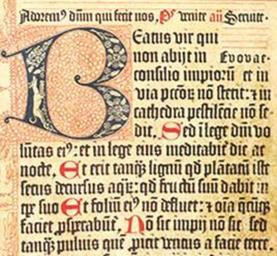 Adorem⁹ dñm qui fecit nos, Ps̄ venite añ Servite.
Beatus vir qui
non abijt in Evovae.
consilio impiorũ et in
via pcc̃oꝝ nõ stetit: ⁊ in
cathedra pestilẽcie nõ se-
dit, Sed ĩ lege dñi vo
lũtas ei⁹: et in lege eius meditabit̃ die ac
nocte, Et erit tanq̃ lignũ qd̃ plãtatũ iste
secus decursus aq̃ꝝ: qd̃ fructũ suũ dabit: in
tꝑe suo Et foliũ ei⁹ nõ defluet: ⁊ oĩa q̃cũq̃
faciet ꝓsꝑabũt̃ Nõ sic impij nõ sic sed
tanq̃ puluis quẽ ꝓicit ventus a facie terre